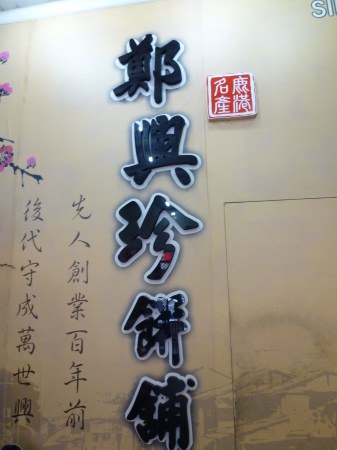 鹿港
名產
鄭興珍餅舖
先人創業百年前
後代守成萬世興